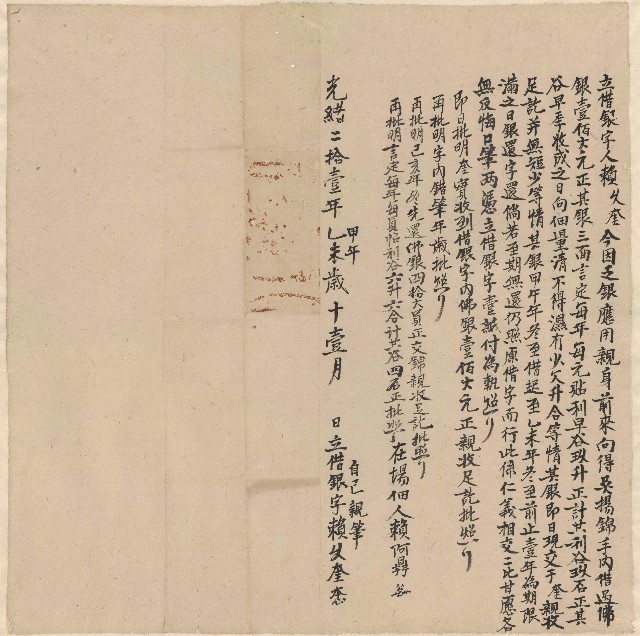 立借銀字人賴文奎今因乏銀應用親身前來向得吳揚錦手內借過佛
銀壹佰大元正其銀三面言定每年每元貼利早谷玖升正計共利谷玖石正其
谷早季收成之日向佃量清不得濕冇少欠升合等情其銀即日現交于奎親收
足訖并無短少等情其銀甲午年冬至借起至乙未年冬至前止壹年為期限
滿之日銀還字還倘若至期無還仍照原借字而行此係仁義相交二比甘愿各
無反悔口筆兩憑立借銀字壹紙付為執炤
即日批明奎實收到借銀字內佛銀壹佰大元正親收足訖批炤
再批明字內錯筆年歲批炤
再批明己亥年冬先還佛銀四拾大員正交錦親收足訖批炤
再批明言定每年每員怗利谷六升六合計共谷四石正批炤
在場佃人賴阿鼎
光緒二拾壹年乙未歲十壹月 日立借銀字賴文奎
甲午
自己親筆